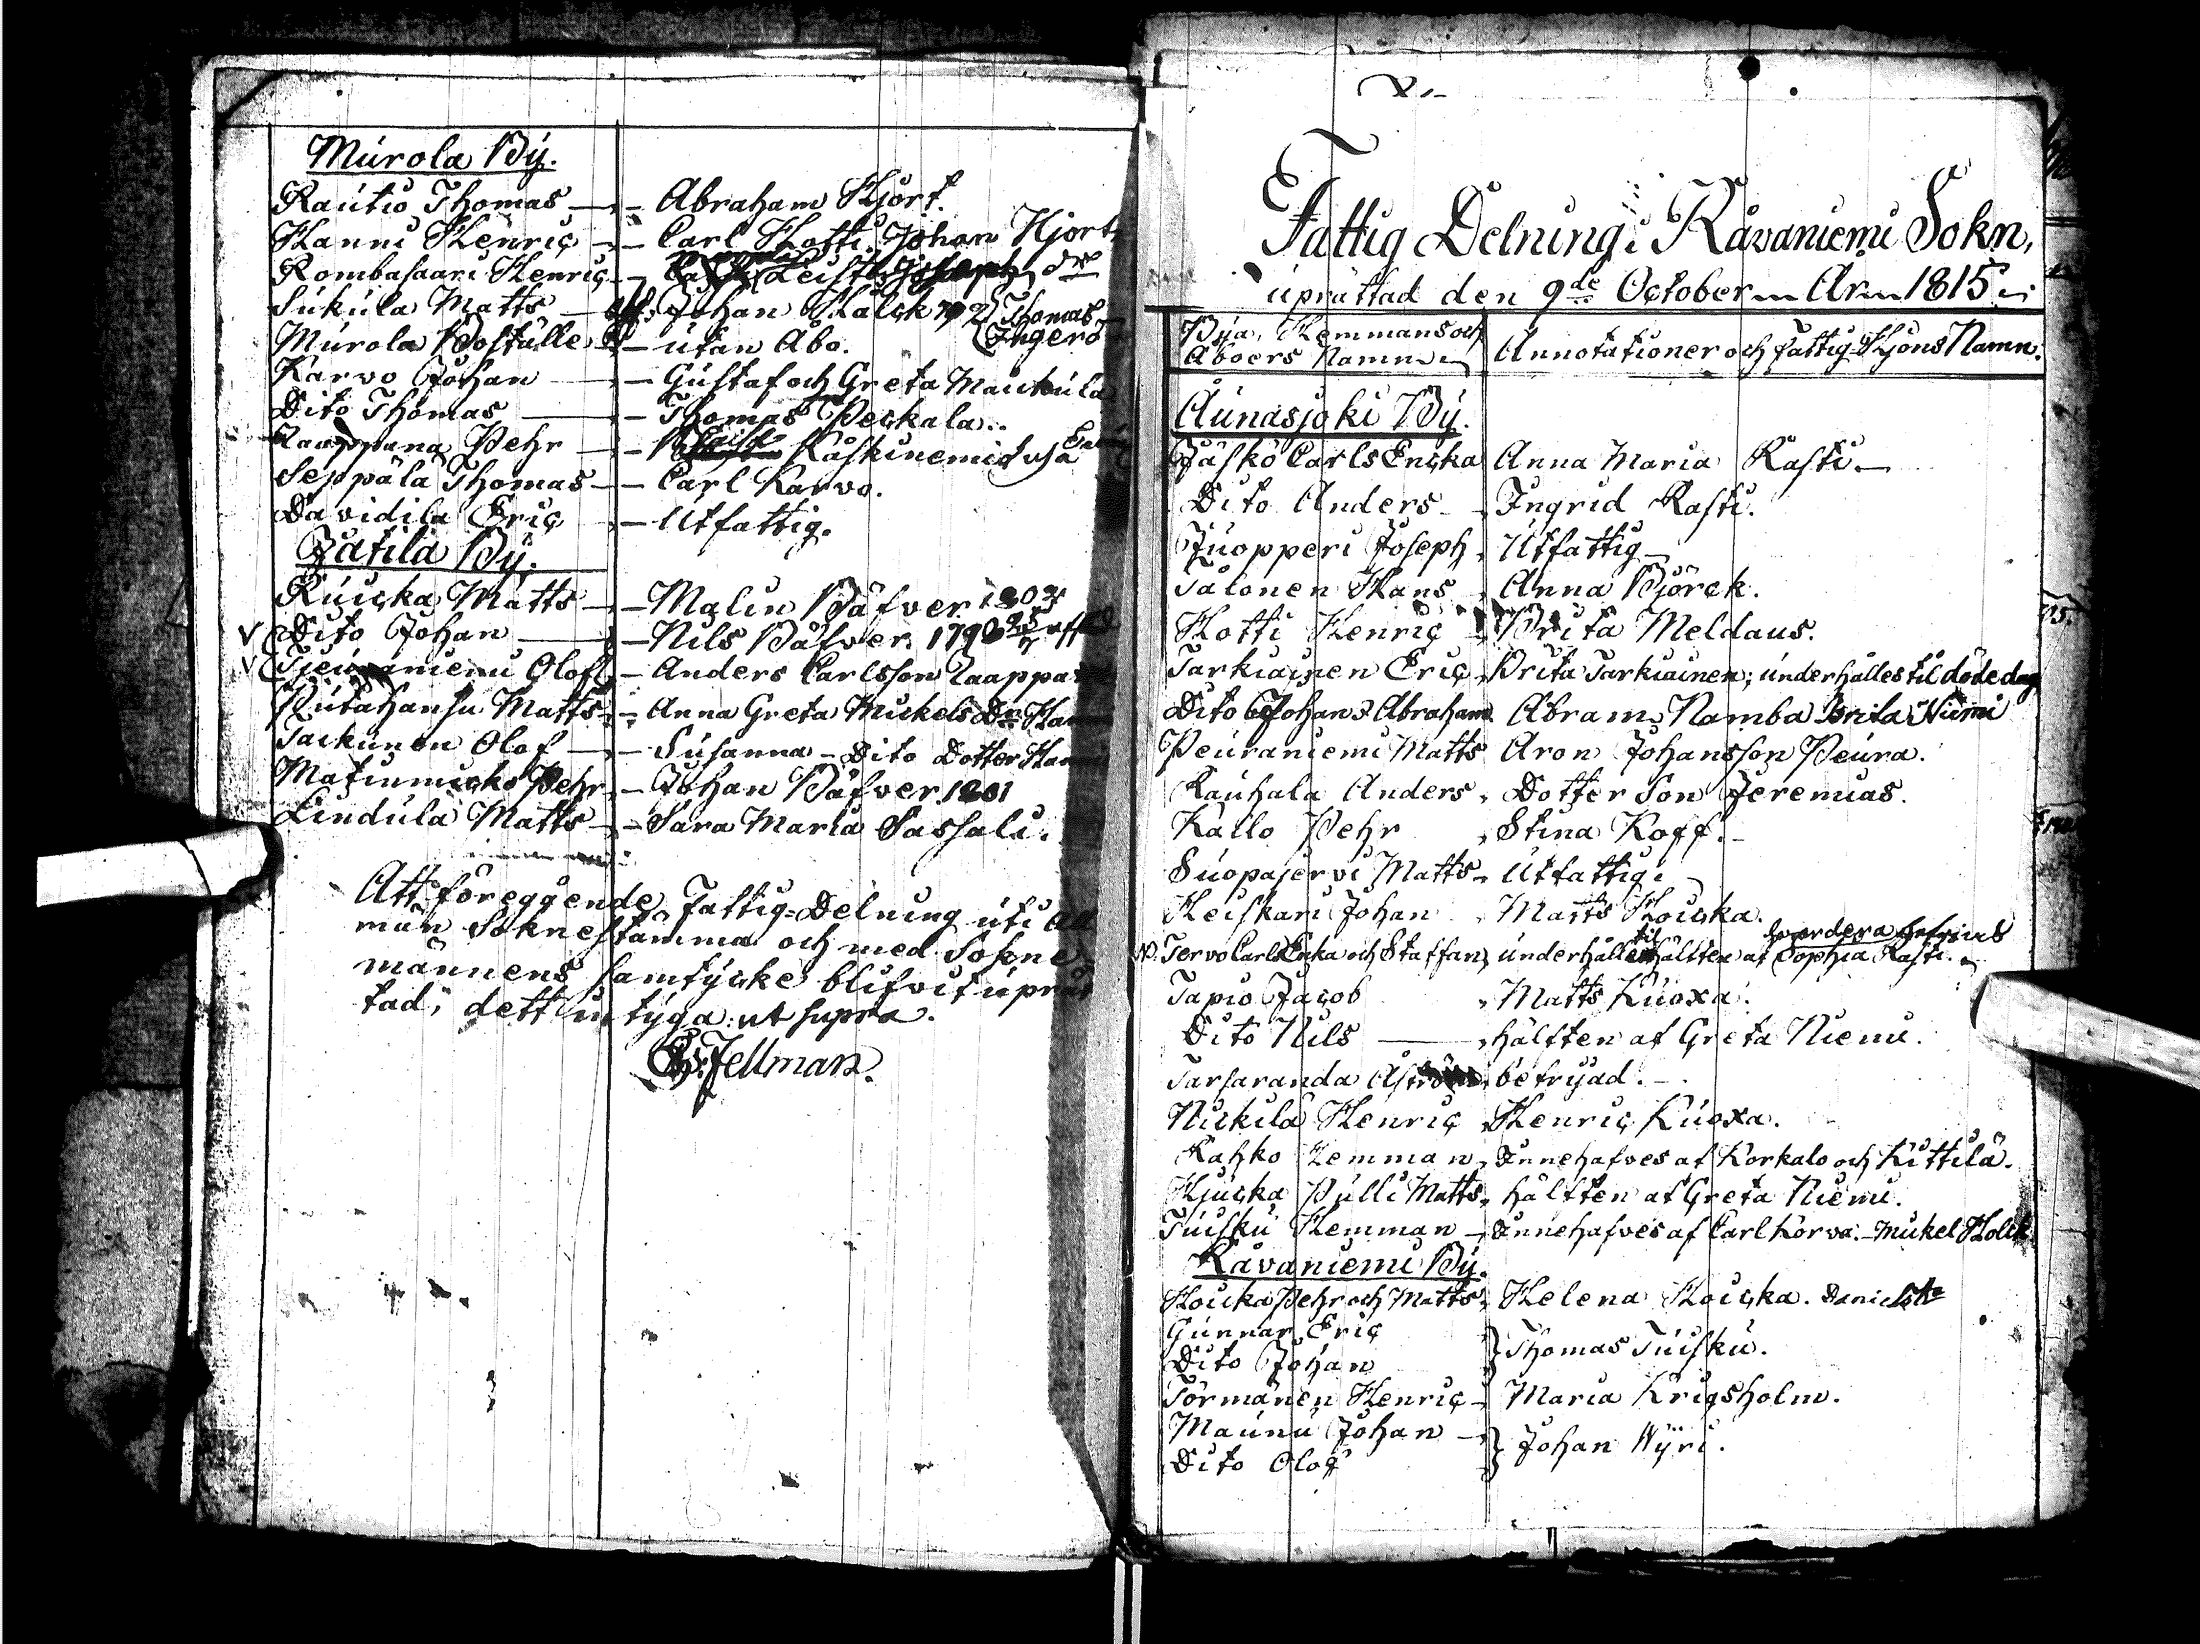 Murola Bÿ.
Rautio Thomas — Abraham Hjort.
Hanni Henric — Carl Hotti. Johan Hjort
Rombasaari Henric —
Sukula Matts — Johan Halck 792 Thomas
Murola Boställe — utan Åbo. Ingerö
Karvo Johan — Gustaf och Greta Mautula
Dito Thomas — Thomas Peckala.
Pehr — Kaskinemi
Seppälä Thomas — Carl Karvo.
Davidila Eric — Utfattig.
Jatila Bÿ.
Ruicka Matts — Malin Bäfver
Dito Johan — Nils Bäfver
Olof — Anders Carlsson Laappa
Matts — Anna Greta Mickels Dr
Olof — Susanna — Dito Dotter
Pehr — Johan Bäfver 1801
Lindula Matts — Sara Maria Sassali.
Att föreggende Fattig-Delning uti All
män Sokne stämma och med Sokne
männens samtycke blifvit uprät
tad; dett intyga ut supra.
Fellman.
Fattig Delning i Råvaniemi Sokn,
uprättad den 9de October År 1815
Bya, Hemmans och
Åboers Namn
Annotationer och Fattig-Hjons Namn.
Aunasjoki Bÿ.
Jäskö Carls Ericka Anna Maria Rasti —
Dito Anders Ingrid Rasti.
Juopperi Joseph Utfattig
Salonen Hans Anna Björck.
Hotti Henric Brita Meldaus.
Tarkiainen Eric Brita Tarkiainen; underhålles til döde dag
Dito Johan Abraham Abram Namba Brita Niemi
Peuraniemi Matts Aron Johansson Peura.
Rauhala Anders Dotter Son Jeremias.
Kallo Pehr Stina Koff.
Suopajervi Matts Utfattig
Heiskari Johan Matts Hoicka.
Tervo Carls Ericka och Staffan, underhålles til hälften af Sophia Rasti.
Tapio Jacob Matts Kuoxa.
Dito Nils — hälften af Greta Niemi.
Tarsaranda befryad.
Nickilä Henric Henric Kuoxa.
Kahko Hemman Innehafves af Korkalo och Kittilä.
Pulli Matts hälften af Greta Niemi.
Tuisku Hemman Innehafves af Carl Korva. Mickel Holck
Råvaniemi Bÿ.
Hoicka Pehr och Matts Helena Hoicka. Daniels
Gunnar Eric
Dito Johan } Thomas Tuisku.
Törmänen Henric Maria Krigsholm.
Maunu Johan
Dito Olof } Johan Wÿri.